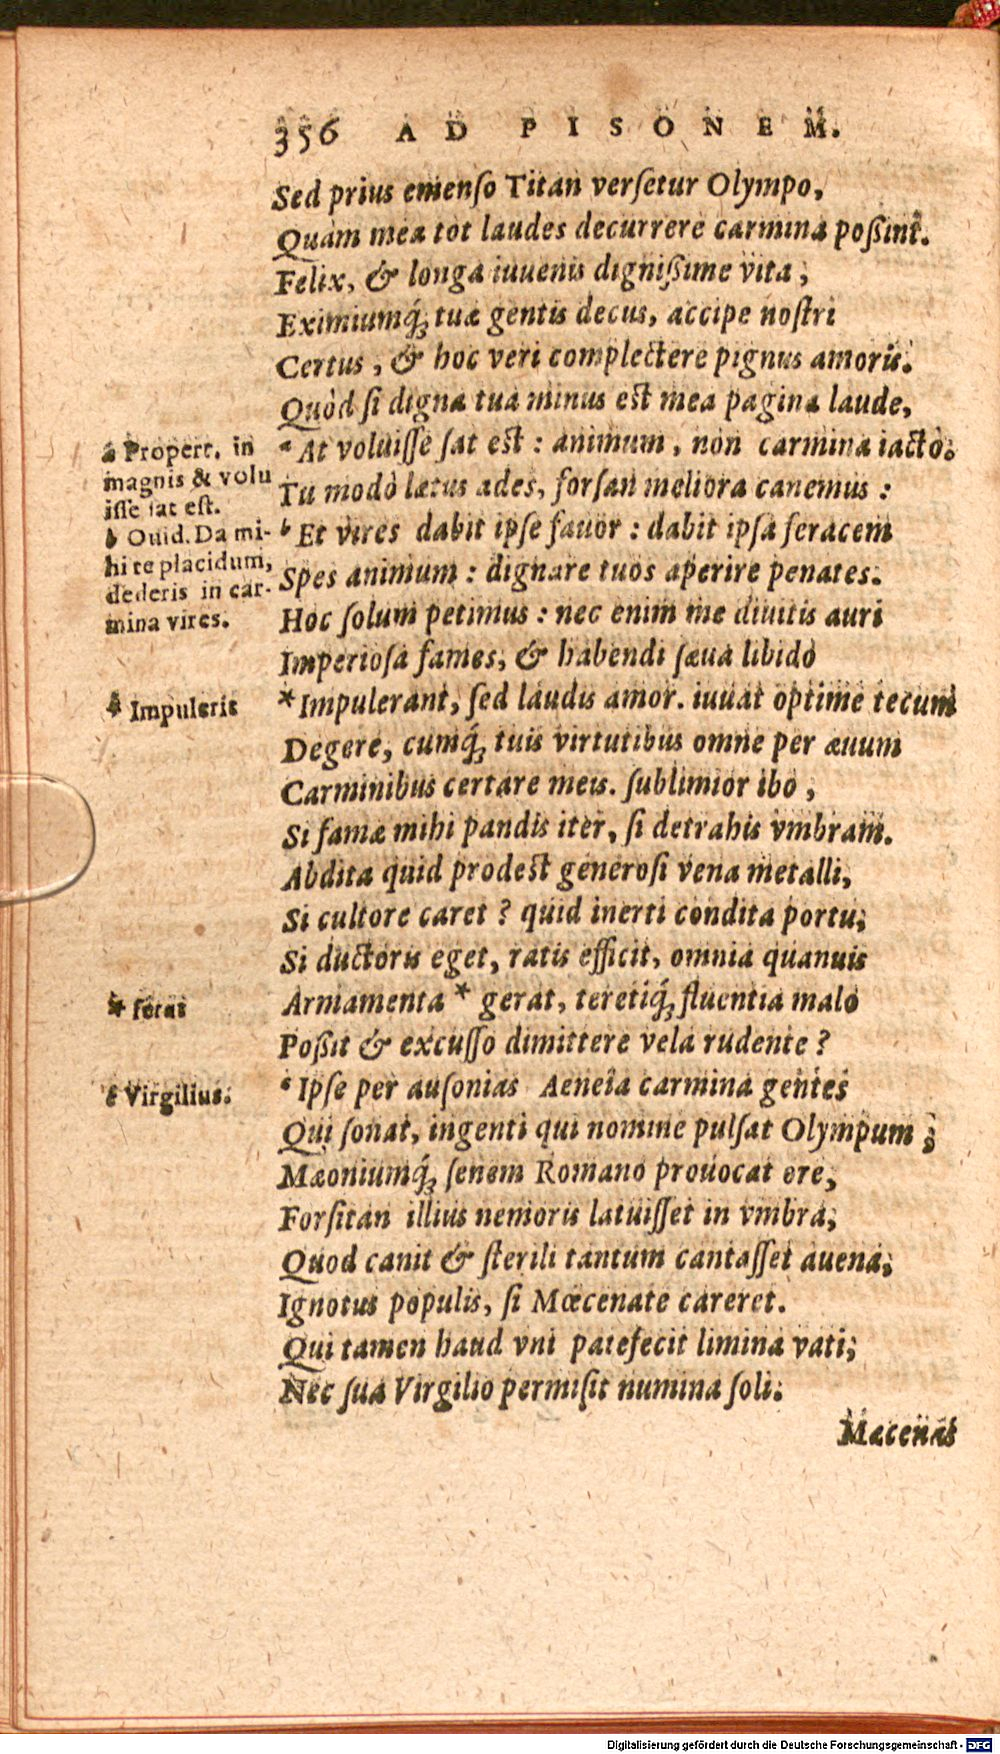 356 AD PISONEM.
Sed prius emenſo Titan verſetur Olympo,
Quam mea tot laudes decurrere carmina poßint.
Felix, & longa iuuenis dignißime vita,
Eximiumq́; tuæ gentis decus, accipe noſtri
Certus, & hoc veri complectere pignus amoris.
Quòd ſi digna tua minus eſt mea pagina laude,
a At voluiſſe ſat eſt: animum, non carmina iacto.
Tu modò lætus ades, forſan meliora canemus:
b Et vires dabit ipſe fauor: dabit ipſa feracem
Spes animum: dignare tuos aperire penates.
Hoc ſolum petimus: nec enim me diuitis auri
Imperioſa fames, & habendi ſæua libido
*Impulerant, ſed laudis amor. iuuat optime tecum
Degere, cumq́; tuis virtutibus omne per æuum
Carminibus certare meis. ſublimior ibo,
Si famæ mihi pandis iter, ſi detrahis vmbram.
Abdita quid prodeſt generoſi vena metalli,
Si cultore caret? quid inerti condita portu,
Si ductoris eget, ratis efficit, omnia quanuis
Armamenta * gerat, teretiq́; fluentia malo
Poßit & excuſſo dimittere vela rudente?
c Ipſe per auſonias Aeneïa carmina gentes
Qui ſonat, ingenti qui nomine pulſat Olympum;
Mæoniumq́; ſenem Romano prouocat ore,
Forſitan illius nemoris latuiſſet in vmbra,
Quod canit & ſterili tantum cantaſſet auena,
Ignotus populis, ſi Mœcenate careret.
Qui tamen haud vni patefecit limina vati;
Nec ſua Virgilio permiſit numina ſoli.
Macenas
a Propert. in
magnis & volu
iſſe ſat eſt.
b Ouid. Da mi-
hi te placidum,
dederis in car-
mina vires.
* Impulerit
* ferat
c Virgilius.
Digitalisierung gefördert durch die Deutsche Forschungsgemeinschaft - DFG